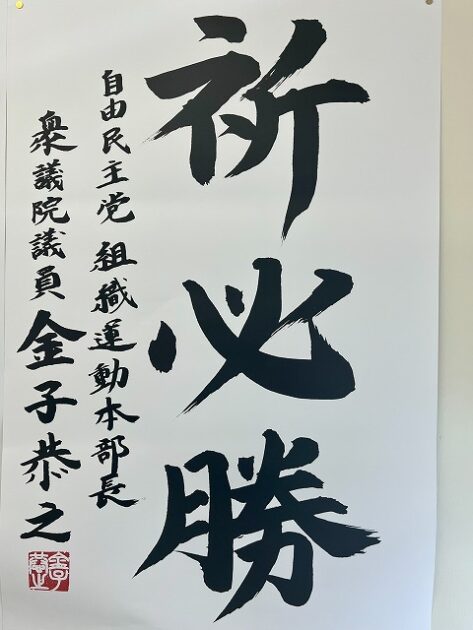 祈必勝
自由民主党 組織運動本部長
衆議院議員 金子恭之